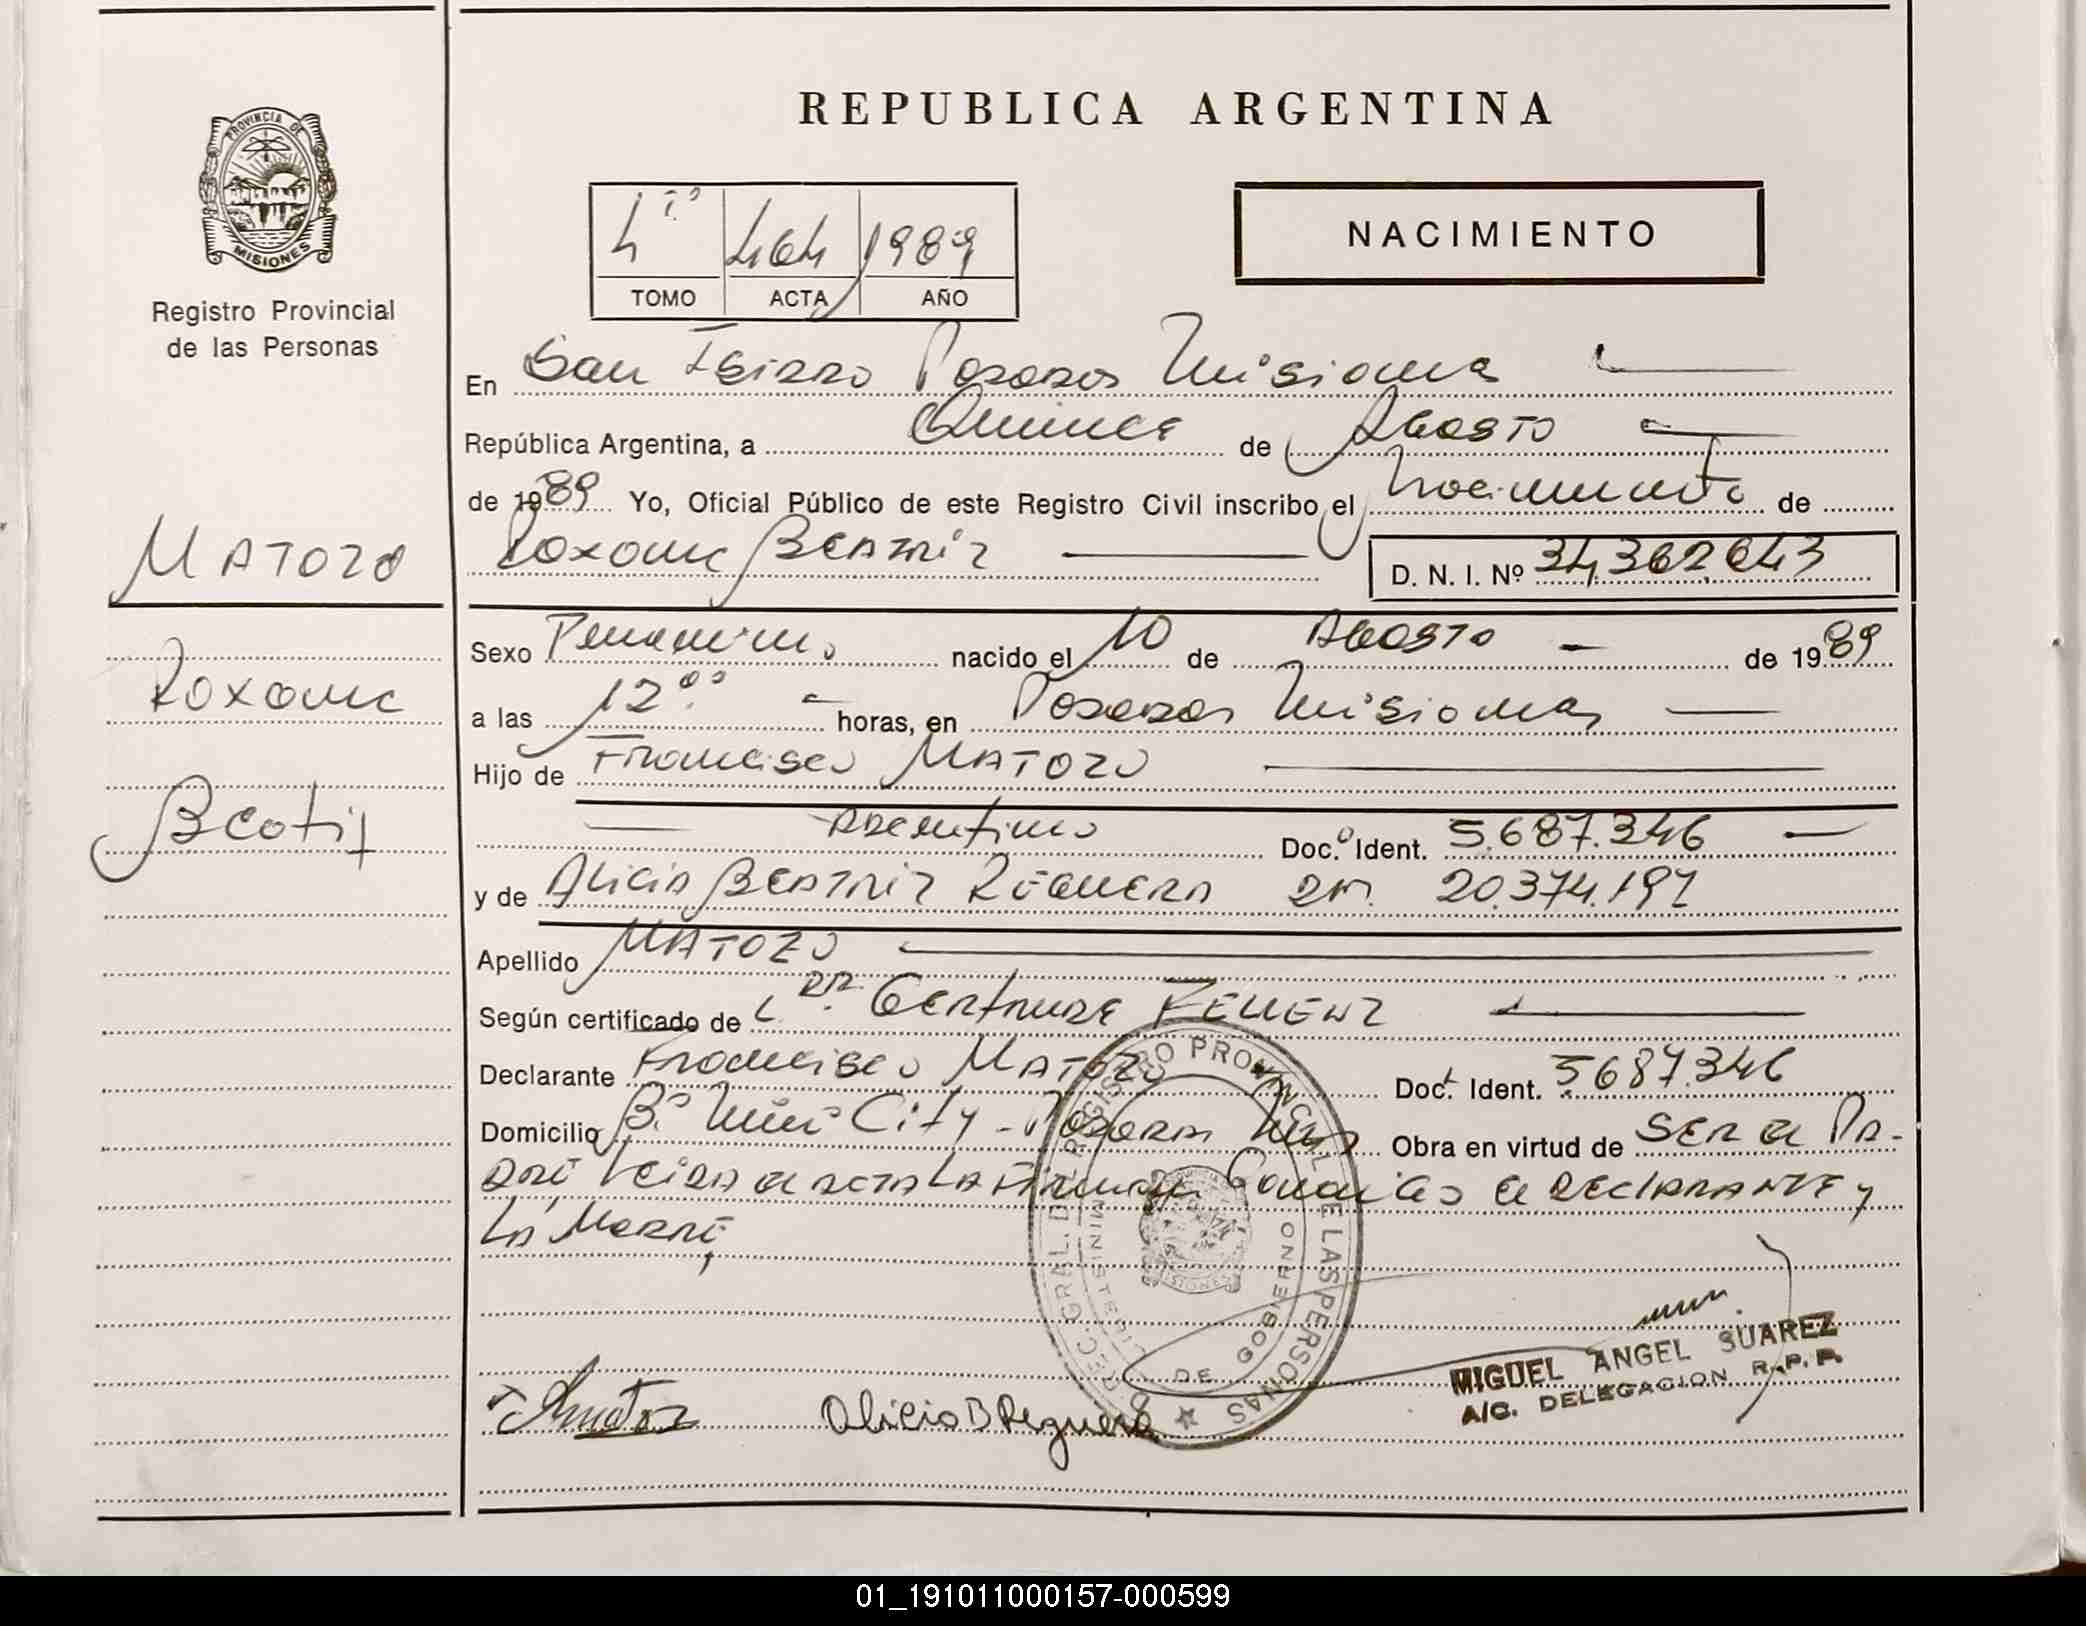 REPUBLICA ARGENTINA
PROVINCIA DE
MISIONES
Registro Provincial
de las Personas
4to 464 1989
TOMO ACTA AÑO
NACIMIENTO
En San Isidro Posadas Misiones
República Argentina, a Quince de Agosto
de 1989 Yo, Oficial Público de este Registro Civil inscribo el Nacimiento de
MATOZO
Roxana Beatriz D. N. I. Nº 34.362.643
Roxana
Beatriz
Sexo Femenino nacido el 10 de Agosto de 1989
a las 12 horas, en Posadas Misiones
Hijo de Francisco MATOZO
Argentino Doc. Ident. 5.687.346
y de Alicia Beatriz REGUERA 20.374.197
Apellido MATOZO
Según certificado de Gertrude
Declarante Francisco MATOZO Doc. Ident. 5687.346
Domicilio Bº Mini City - Posadas Mnes Obra en virtud de SER el PA-
DRE leida el acta LA Firman Conmigo el DECLARANTE y
LA MADRE,
DIREC. GRAL. DEL REGISTRO PROVINCIAL DE LAS PERSONAS
MINISTERIO DE GOBIERNO
MISIONES
MIGUEL ANGEL SUAREZ
A/C. DELEGACION R.P.P.
Alicia B Reguera
01_191011000157-000599